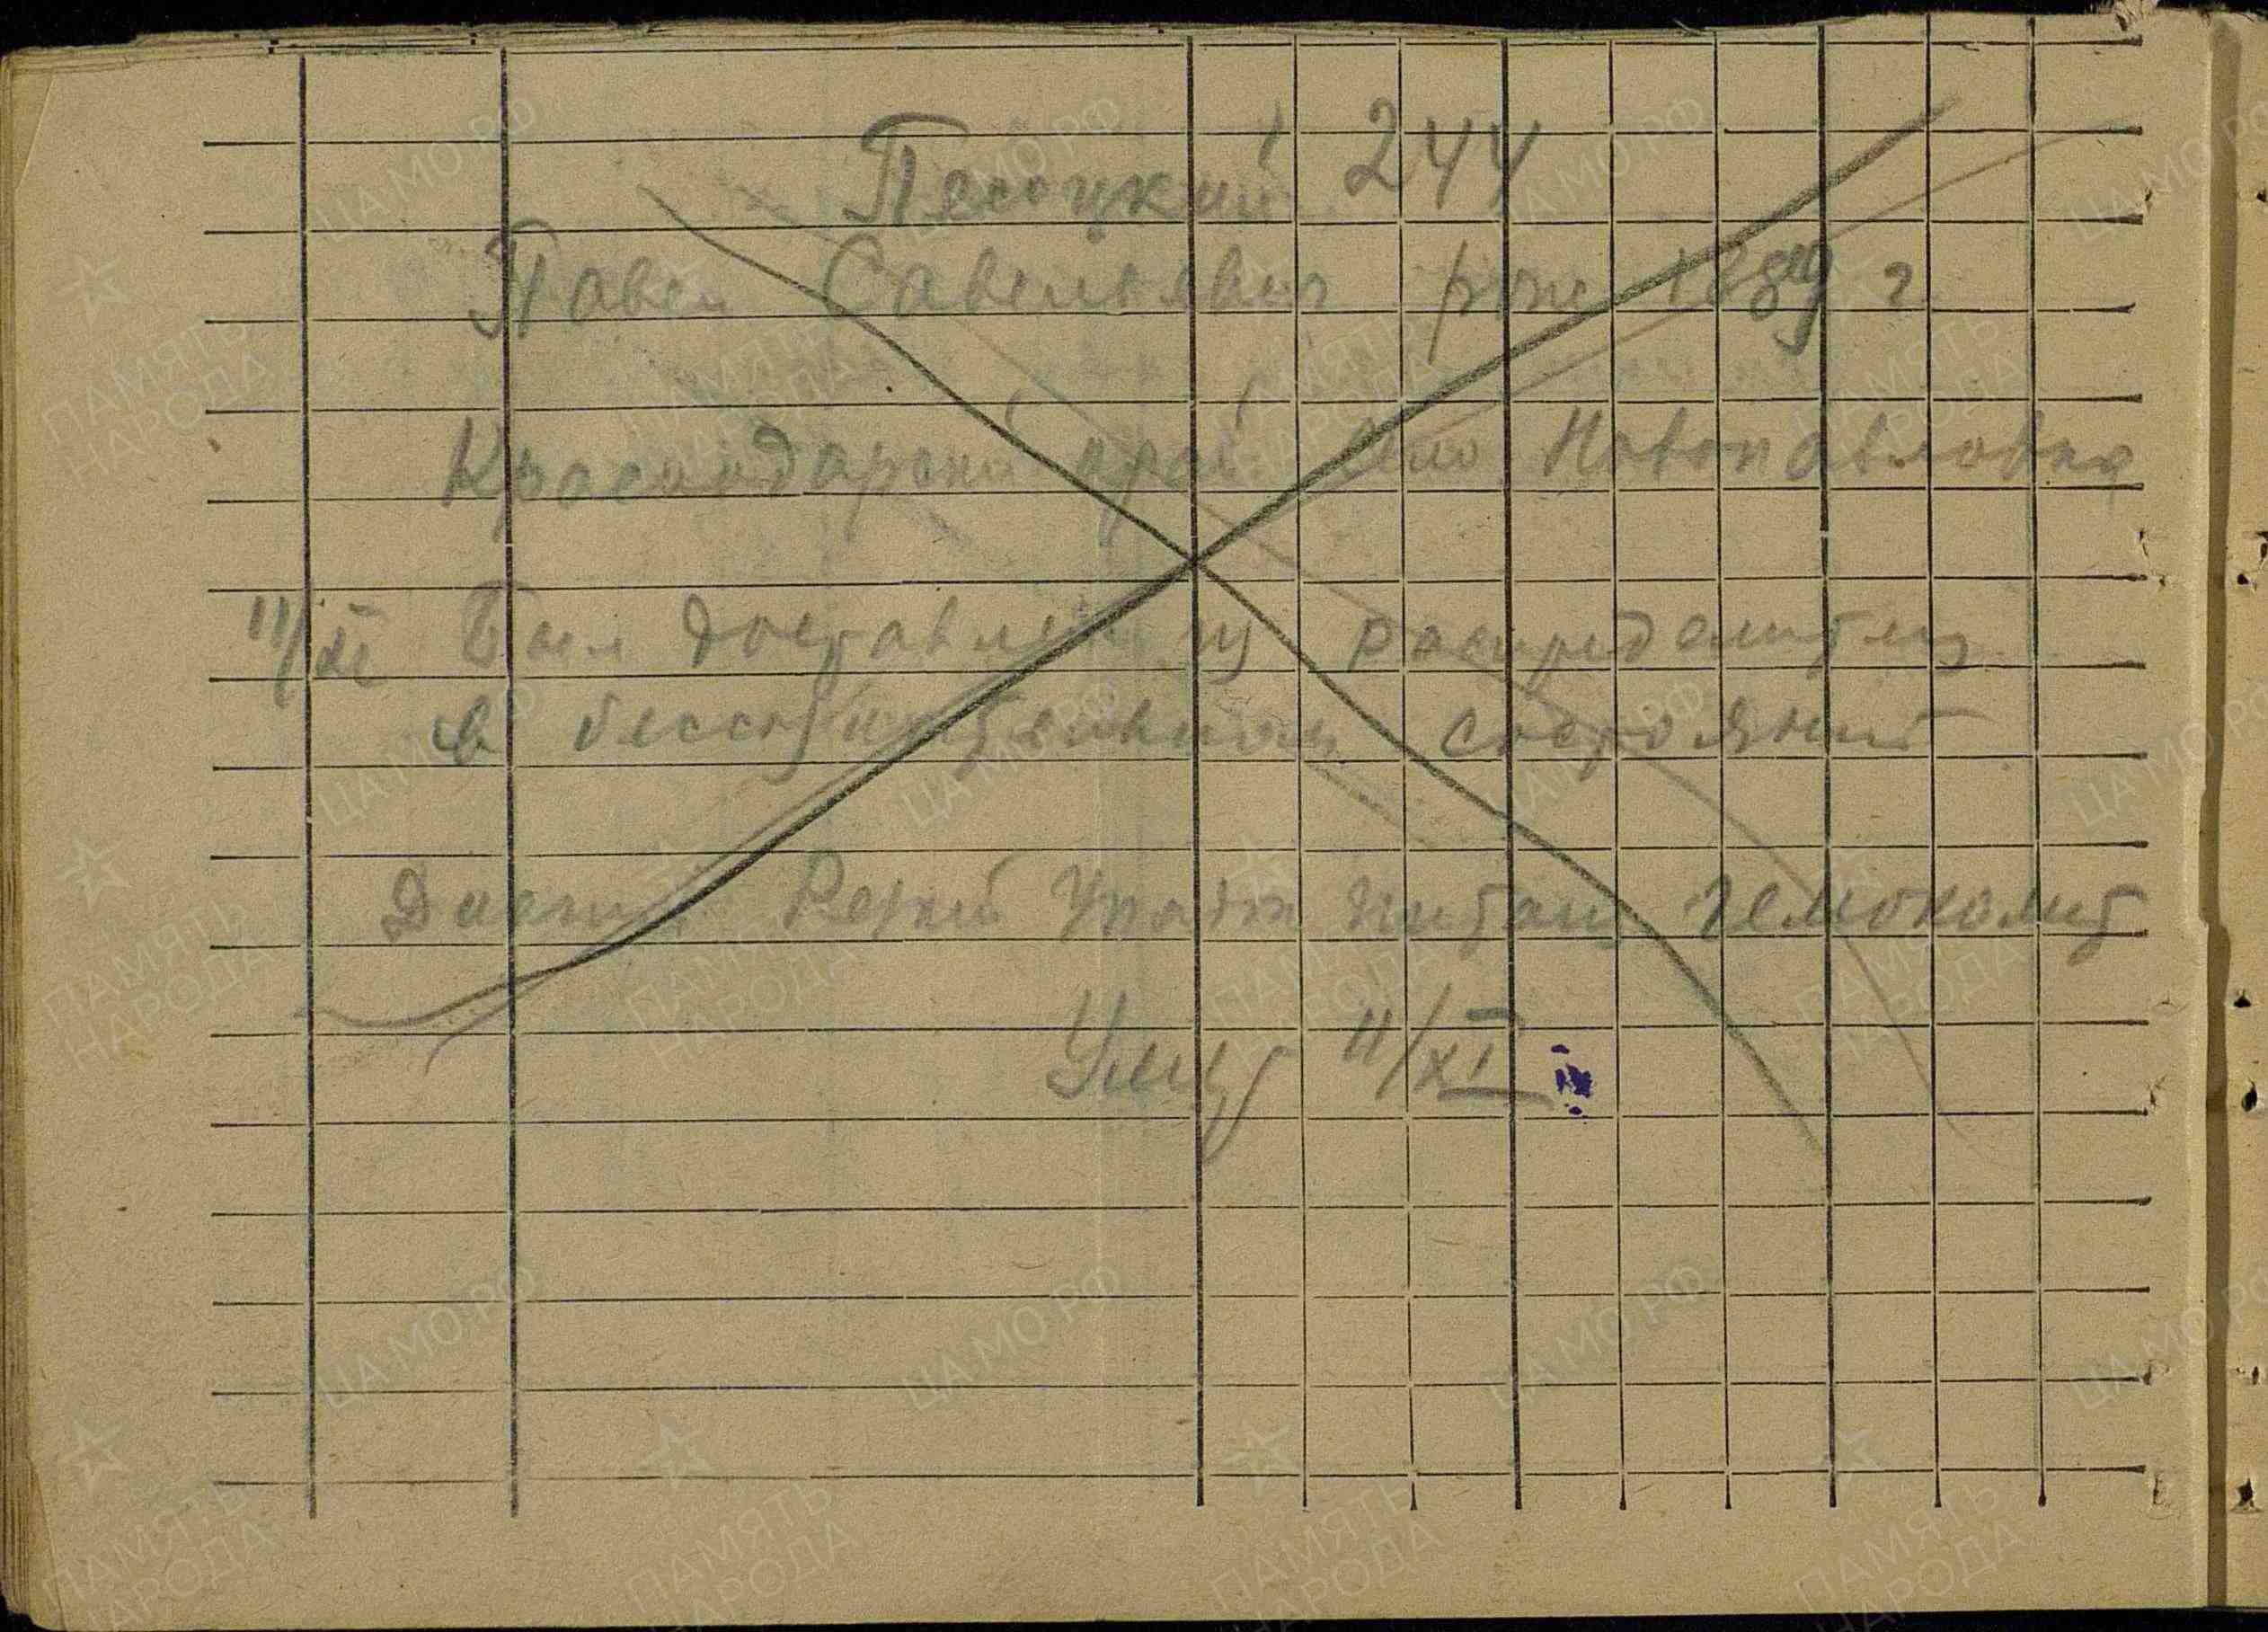 Песоцкий 244
Павел Савельевич рож 1889 г
Краснодарский край село Новопавловка
11/XI Был доставлен из распределителя
в бессознательном состоянии
Диагн Резкий Упадок питан Гемоколит
Умер 11/XI